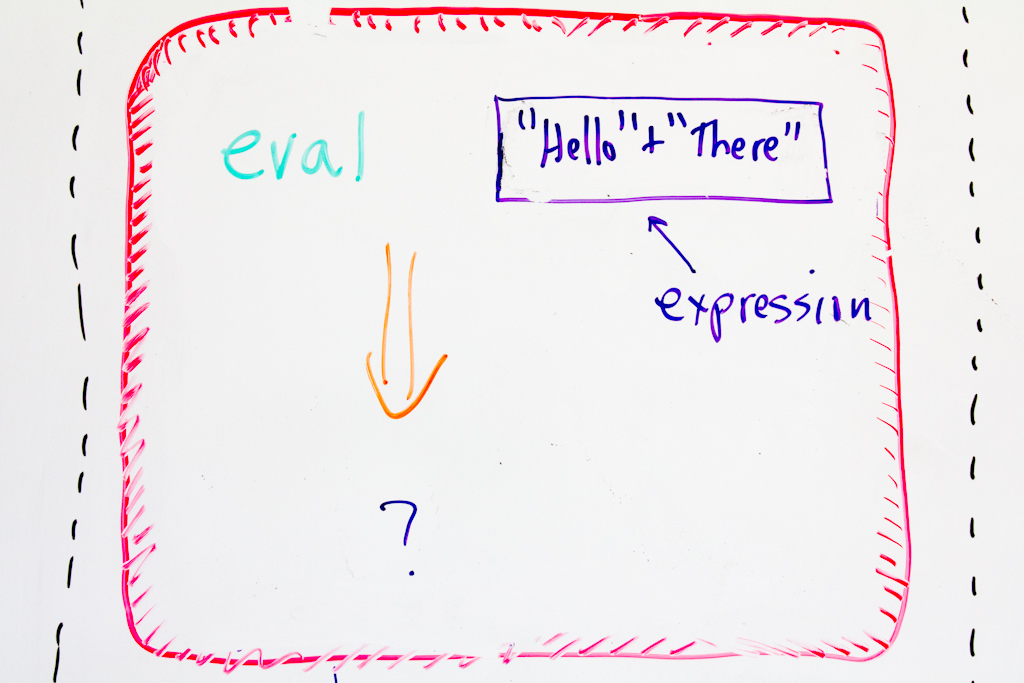 eval
"Hello" + "There"
expression
?